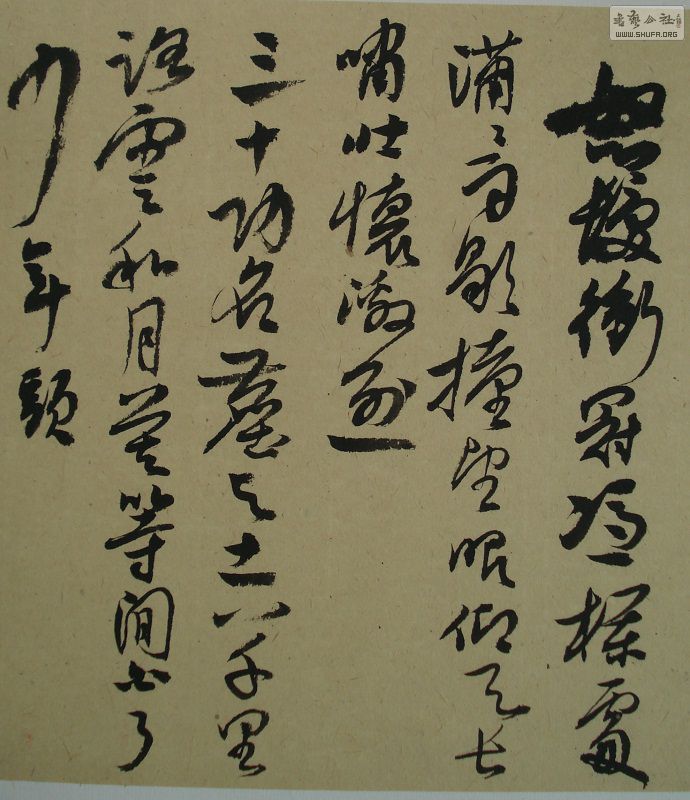 怒髮衝冠憑欄處
瀟々雨歇擡望眼仰天長
嘯壯懷激烈
三十功名塵与土八千里
路雲和月莫等間白了
少年頭
書藝公社
WWW.SHUFA.ORG